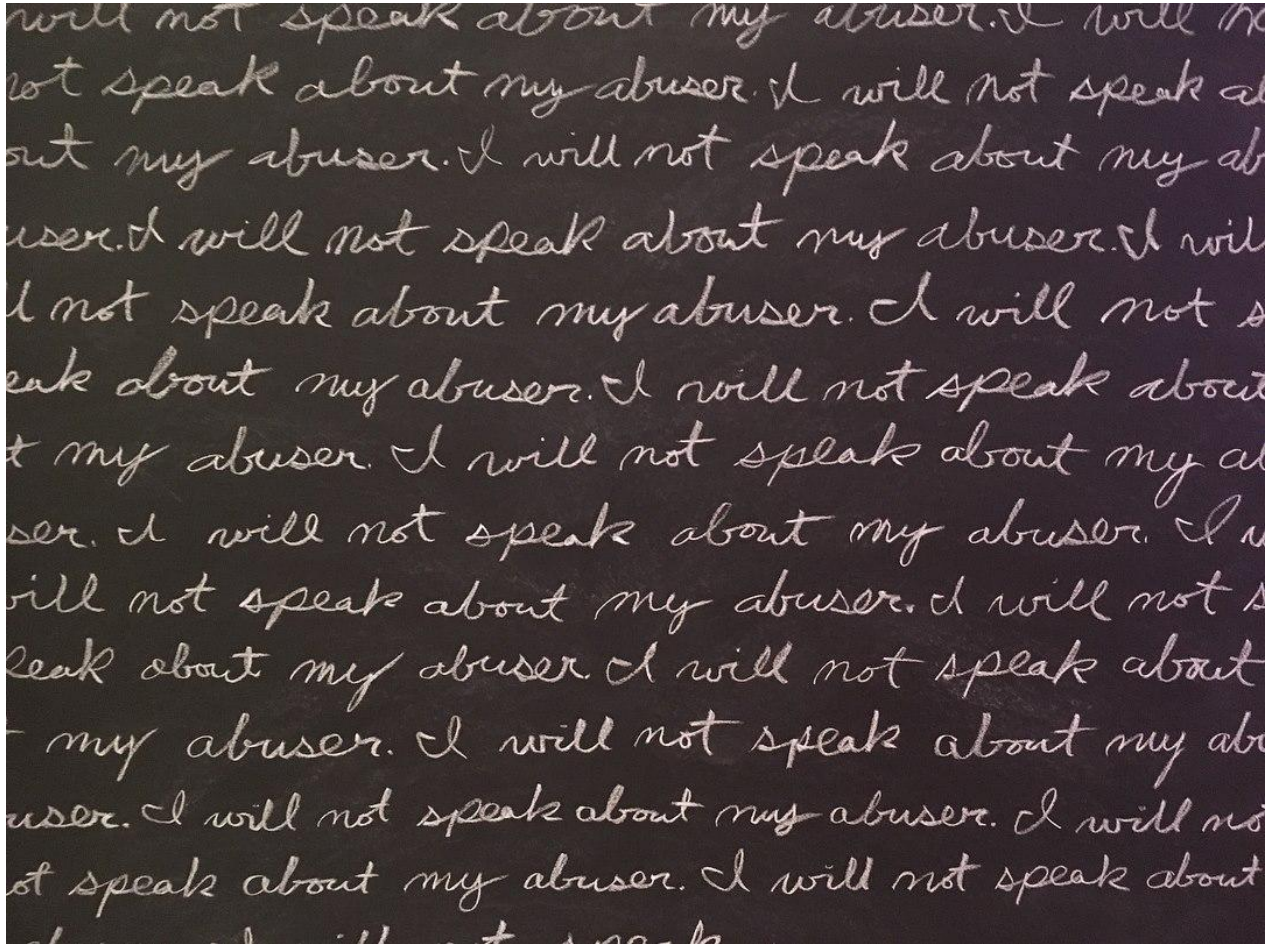 will not speak about my abuser. I will no
not speak about my abuser. I will not speak ab
out my abuser. I will not speak about my ab
user. I will not speak about my abuser. I wil
l not speak about my abuser. I will not s
eak about my abuser. I will not speak about
t my abuser. I will not speak about my ab
ser. I will not speak about my abuser. I w
will not speak about my abuser. I will not s
peak about my abuser. I will not speak about
my abuser. I will not speak about my abu
user. I will not speak about my abuser. I will no
ot speak about my abuser. I will not speak about
abuser. I will not speak